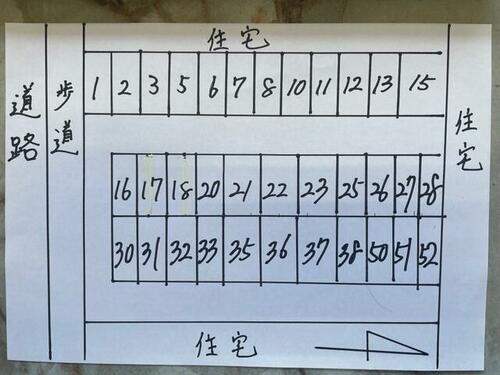 住宅
道路
歩道
1 2 3 5 6 7 8 10 11 12 13 15
住宅
16 17 18 20 21 22 23 25 26 27 28
30 31 32 33 35 36 37 38 50 51 52
住宅